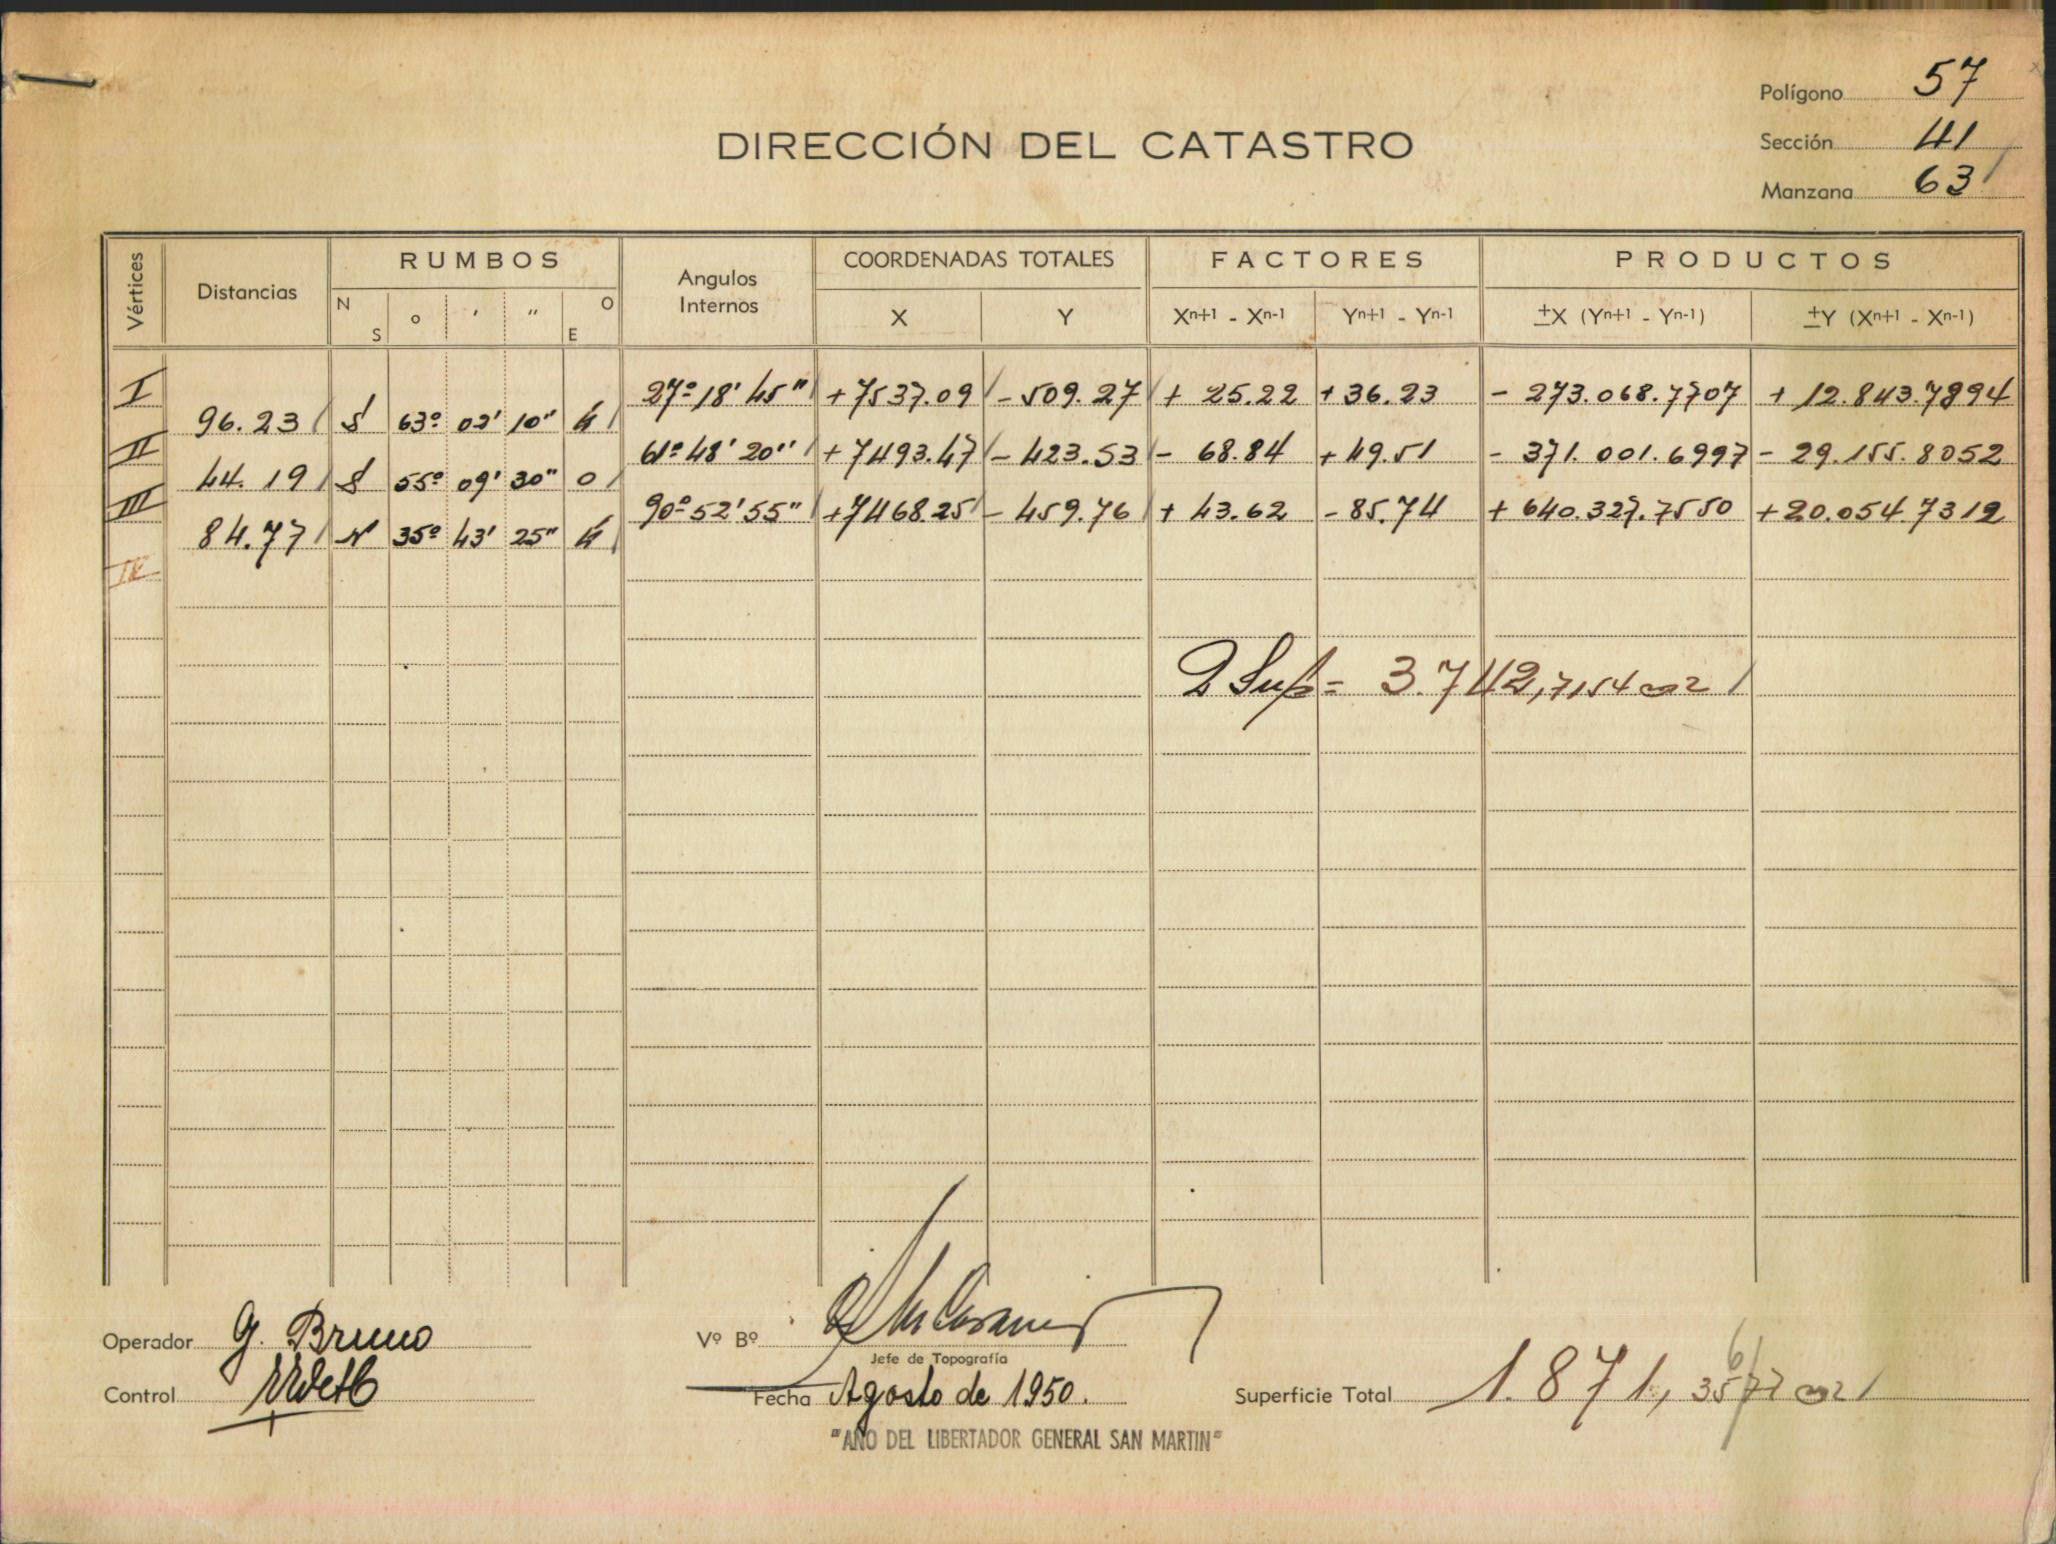 Polígono 57
DIRECCIÓN DEL CATASTRO
Sección 41
Manzana 63
Vértices Distancias RUMBOS Angulos Internos COORDENADAS TOTALES FACTORES PRODUCTOS
N S o ' " O E X Y Xn+1 - Xn-1 Yn+1 - Yn-1 ±X (Yn+1 - Yn-1) ±Y (Xn+1 - Xn-1)
I 27º 18' 45" +7537.09 - 509.27 + 25.22 + 36.23 - 273.068.7707 + 12.843.7894
96.23 S 63º 02' 10" E
II 61º 48' 20" +7493.47 - 423.53 - 68.84 + 49.51 - 371.001.6997 - 29.155.8052
44.19 S 55º 09' 30" O
III 90º 52' 55" +7468.25 - 459.76 + 43.62 - 85.74 + 640.327.7550 + 20.054.7312
84.77 N 35º 43' 25" E
IV
2 Sup = 3.742,7154 m2
Operador G. Bruno
Vº Bº
Jefe de Topografía
Control
Fecha Agosto de 1950.
Superficie Total 1.871, 3577 m2
6
"AÑO DEL LIBERTADOR GENERAL SAN MARTIN"